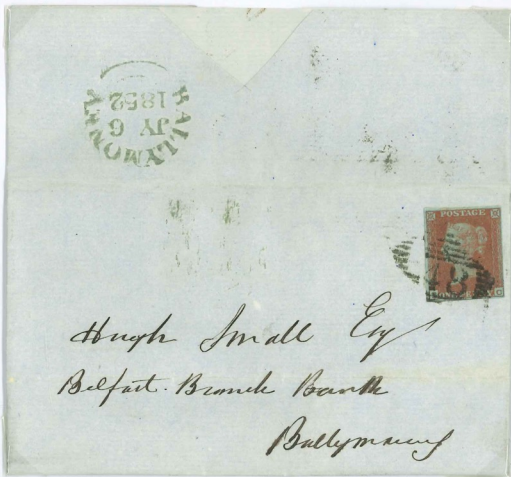 BALLYMONEY
JY 6
1852
POSTAGE
Hugh Small Esq
Belfast Branch Bank
Ballymoney